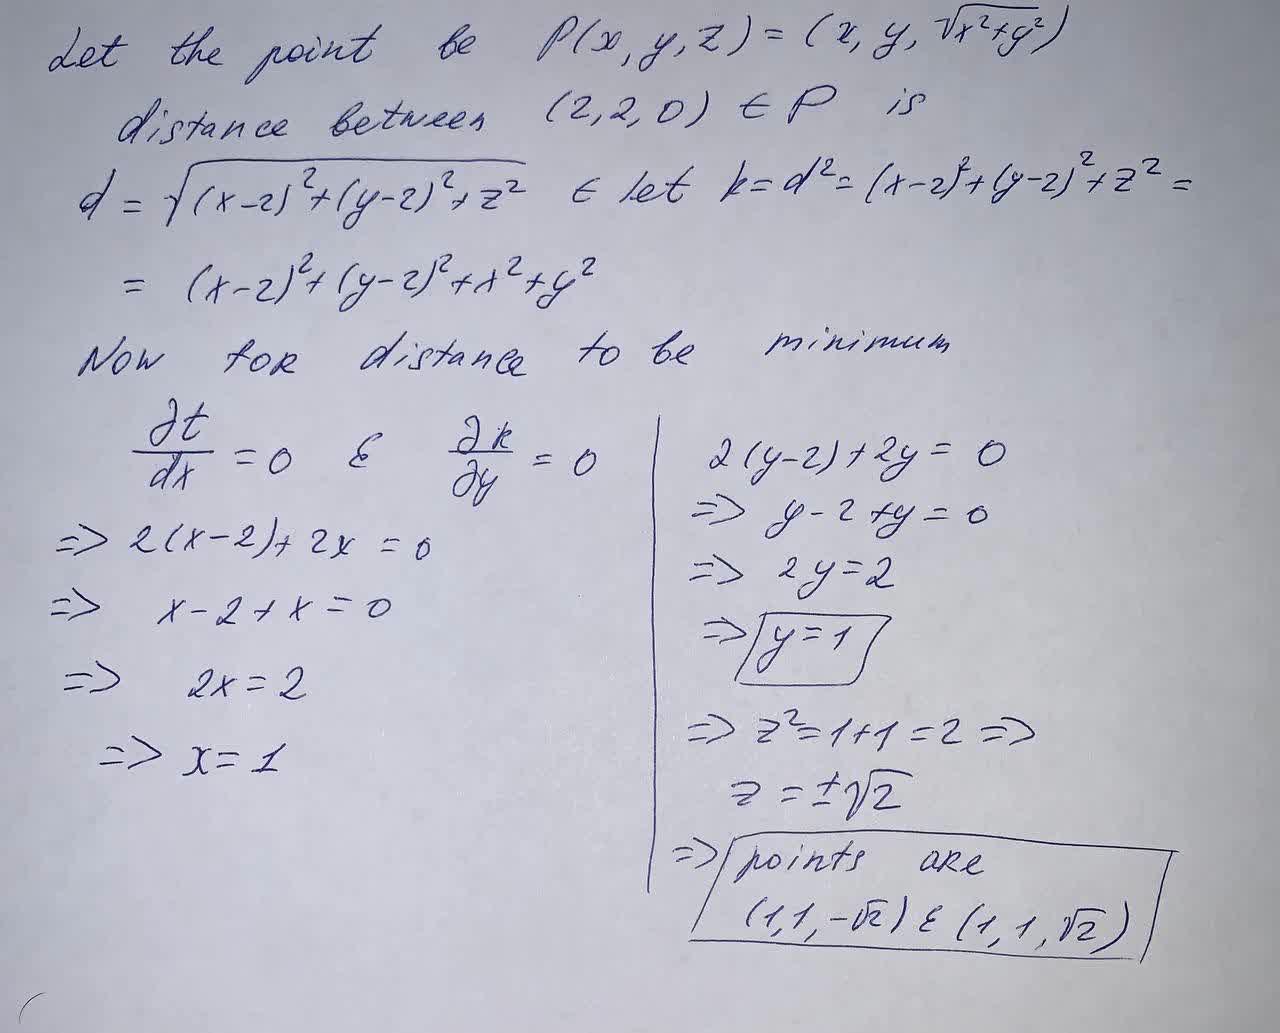 Let the point be P(x, y, z) = (x, y, √x²+y²)
distance between (2, 2, 0) ∈ P is
d = √(x-2)²+(y-2)²+z² ∈ let k = d² = (x-2)²+(y-2)²+z² =
= (x-2)²+(y-2)²+x²+y²
Now for distance to be minimum
∂t/dx = 0 & ∂k/∂y = 0
=> 2(x-2)+2x = 0
=> x-2+x = 0
=> 2x = 2
=> x = 1
2(y-2)+2y = 0
=> y-2+y = 0
=> 2y = 2
=> y = 1
=> z² = 1+1 = 2 =>
z = ±√2
=> points are
(1, 1, -√2) & (1, 1, √2)